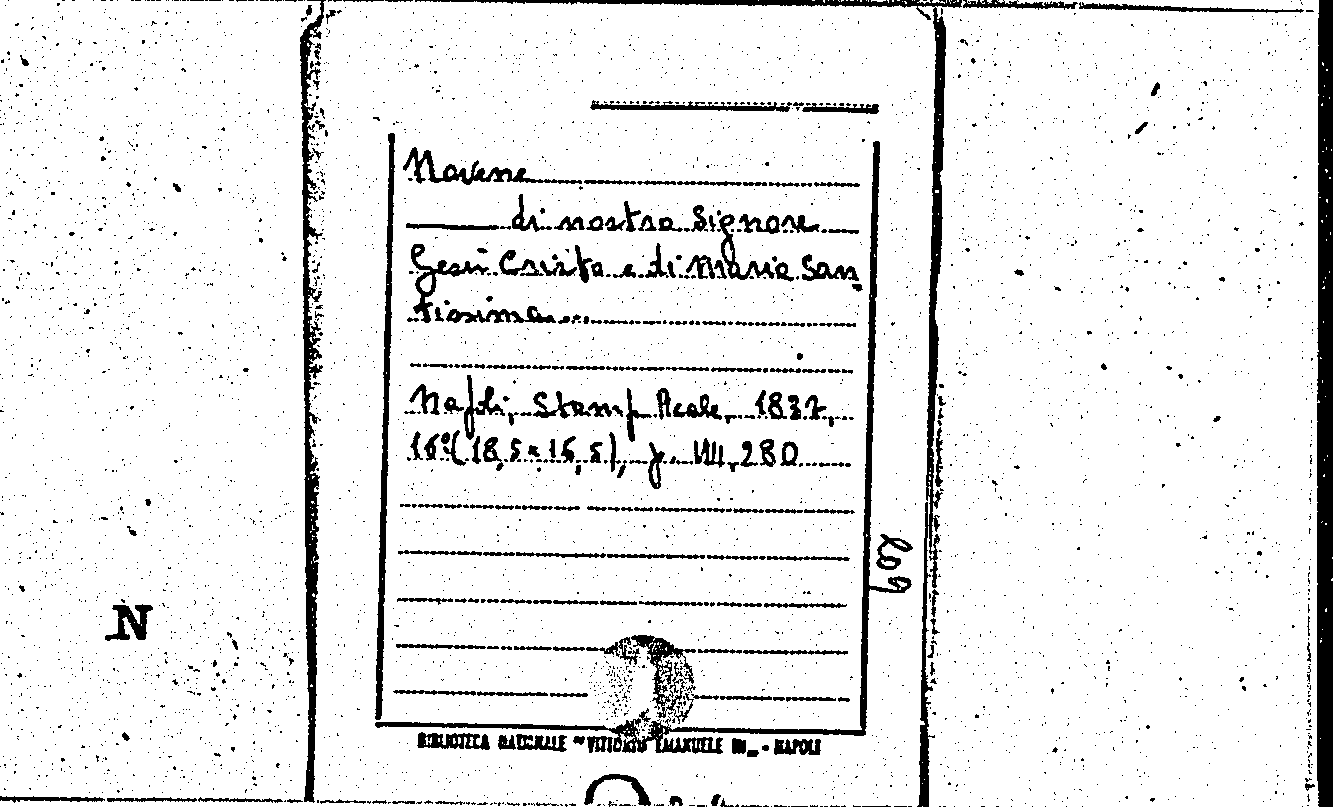 Novene
di nostro Signore
Gesù Cristo e di Maria San
tissima...
Napoli, Stamp Reale, 1837,
16°(18,5 x 16,5), p. VIII, 280
209
N
BIBLIOTECA NAZIONALE "VITTORIO EMANUELE III" - NAPOLI